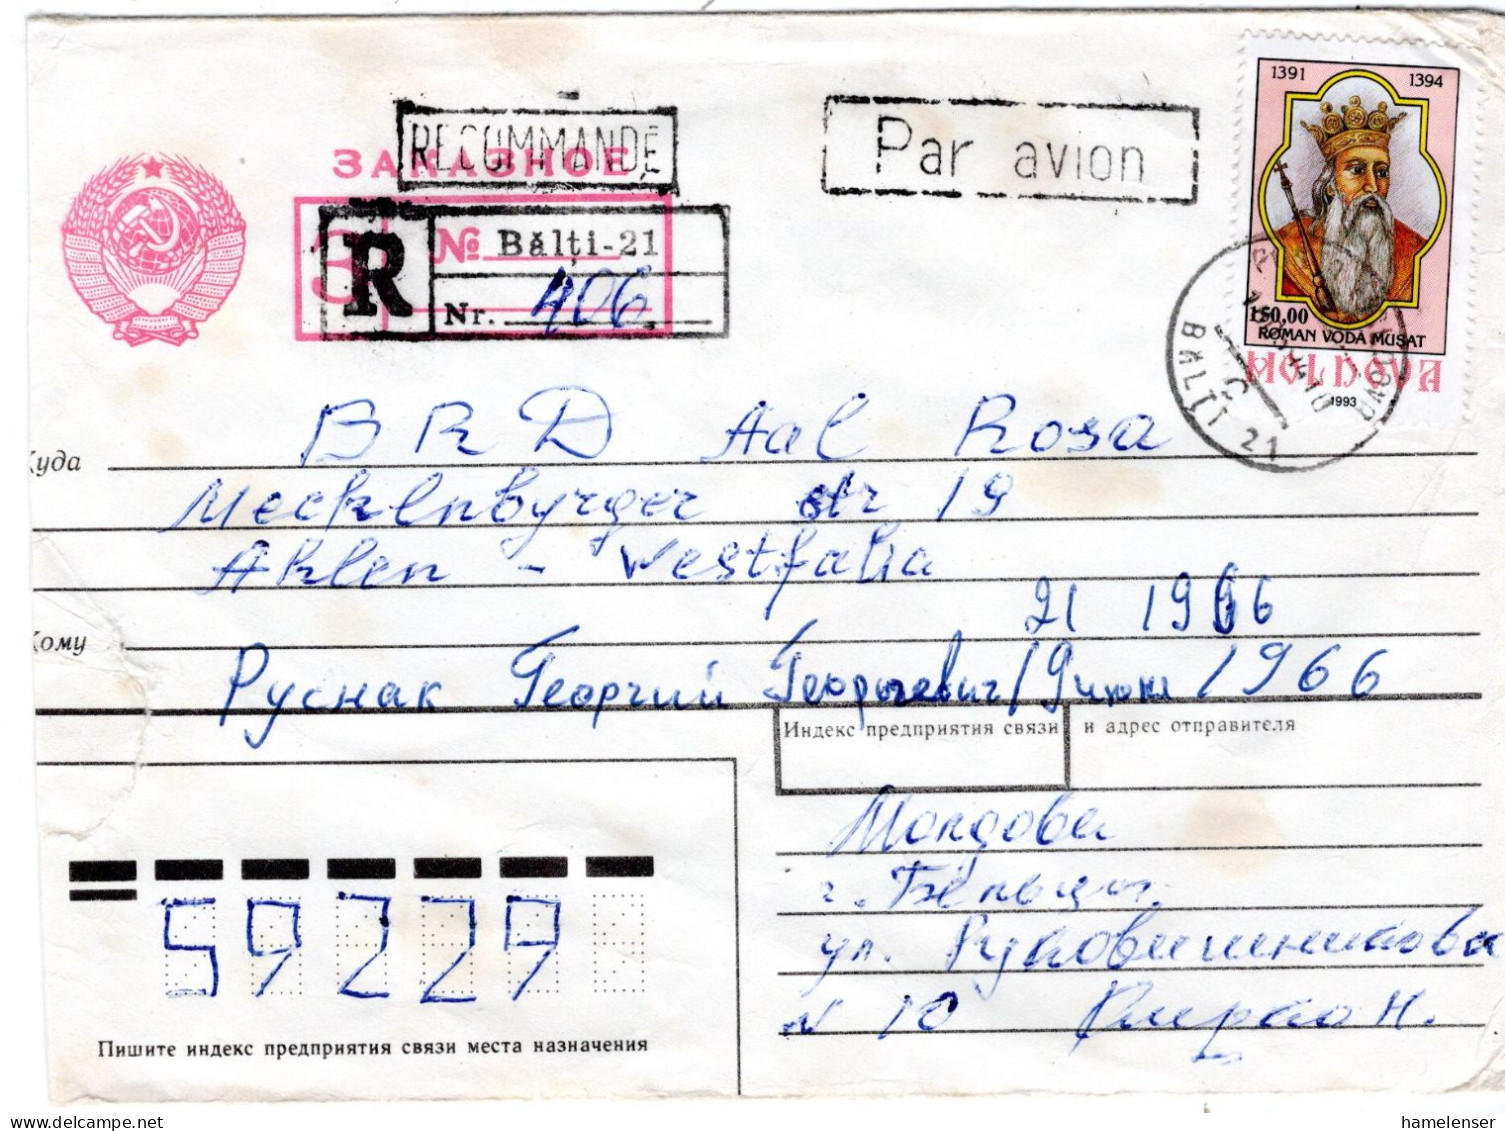 RECOMMANDÉ
ЗАКАЗНОЕ
Par avion
1391 1394
R
№ Bălți-21
Nr. 406
150,00
ROMAN VODĂ MUȘAT
MOLDOVA
1993
BĂLȚI 21
Куда
BRD Aal Rosa
Mecklenburger str 19
Ahlen - Westfalia
Кому
21 1966
Руснак Георгий Георгиевич 19 июня 1966
Индекс предприятия связи и адрес отправителя
Молдова
г. Бельцы.
ул.
N 10 Н.
59229
Пишите индекс предприятия связи места назначения
hamelenser